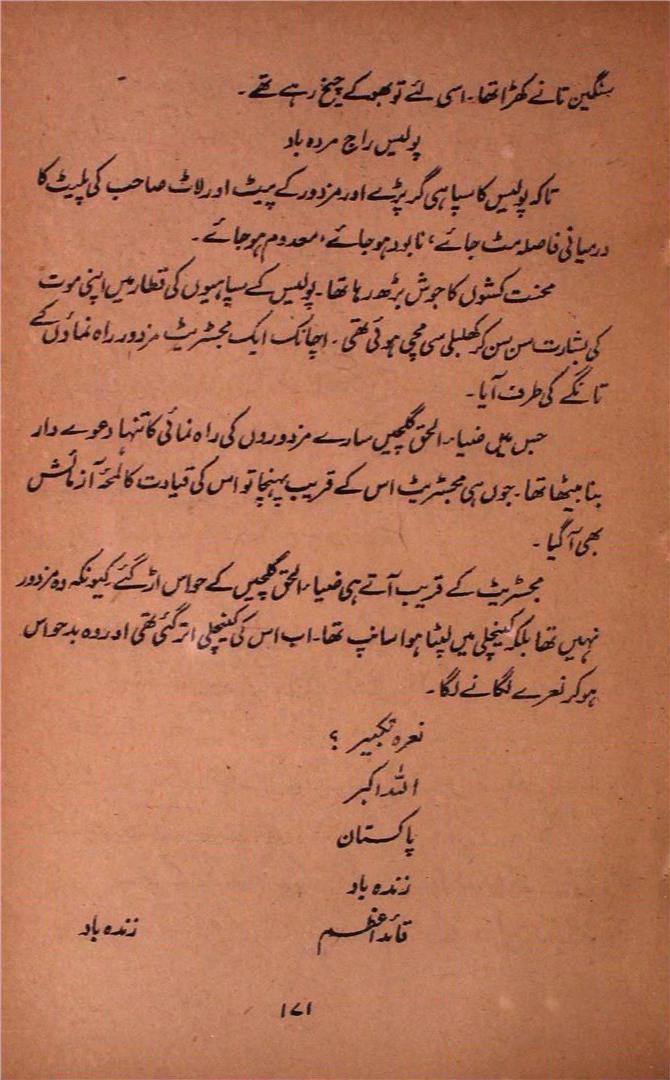 سنگین تانے کھڑا تھا۔ اسی لئے تو بھوکے چیخ رہے تھے۔
پولیس راج مردہ باد
تاکہ پولیس کا سپاہی گر پڑے اور مزدور کے پیٹ اور لاٹ صاحب کی پلیٹ کا
درمیانی فاصلہ مٹ جائے، نابود ہو جائے، معدوم ہو جائے۔
محنت کشوں کا جوش بڑھ رہا تھا۔ پولیس کے سپاہیوں کی قطار میں اپنی موت
کی بشارت سن سن کر کھلبلی سی مچی ہوئی تھی۔ اچانک ایک مجسٹریٹ مزدور راہ نماؤں کے
تانگے کی طرف آیا۔
جس میں ضیاء الحق گلچیں سارے مزدوروں کی راہ نمائی کا تنہا دعوے دار
بنا بیٹھا تھا۔ جوں ہی مجسٹریٹ اس کے قریب پہنچا تو اس کی قیادت کا لمحۂ آزمائش
بھی آ گیا۔
مجسٹریٹ کے قریب آتے ہی ضیاء الحق گلچیں کے حواس اڑ گئے کیونکہ وہ مزدور
نہیں تھا بلکہ کینچلی میں لپٹا ہوا سانپ تھا۔ اب اس کی کینچلی اتر گئی تھی اور وہ بدحواس
ہو کر نعرے لگانے لگا۔
نعرہ تکبیر ؟
اللہ اکبر
پاکستان
زندہ باد
قائد اعظم زندہ باد
۱۷۱